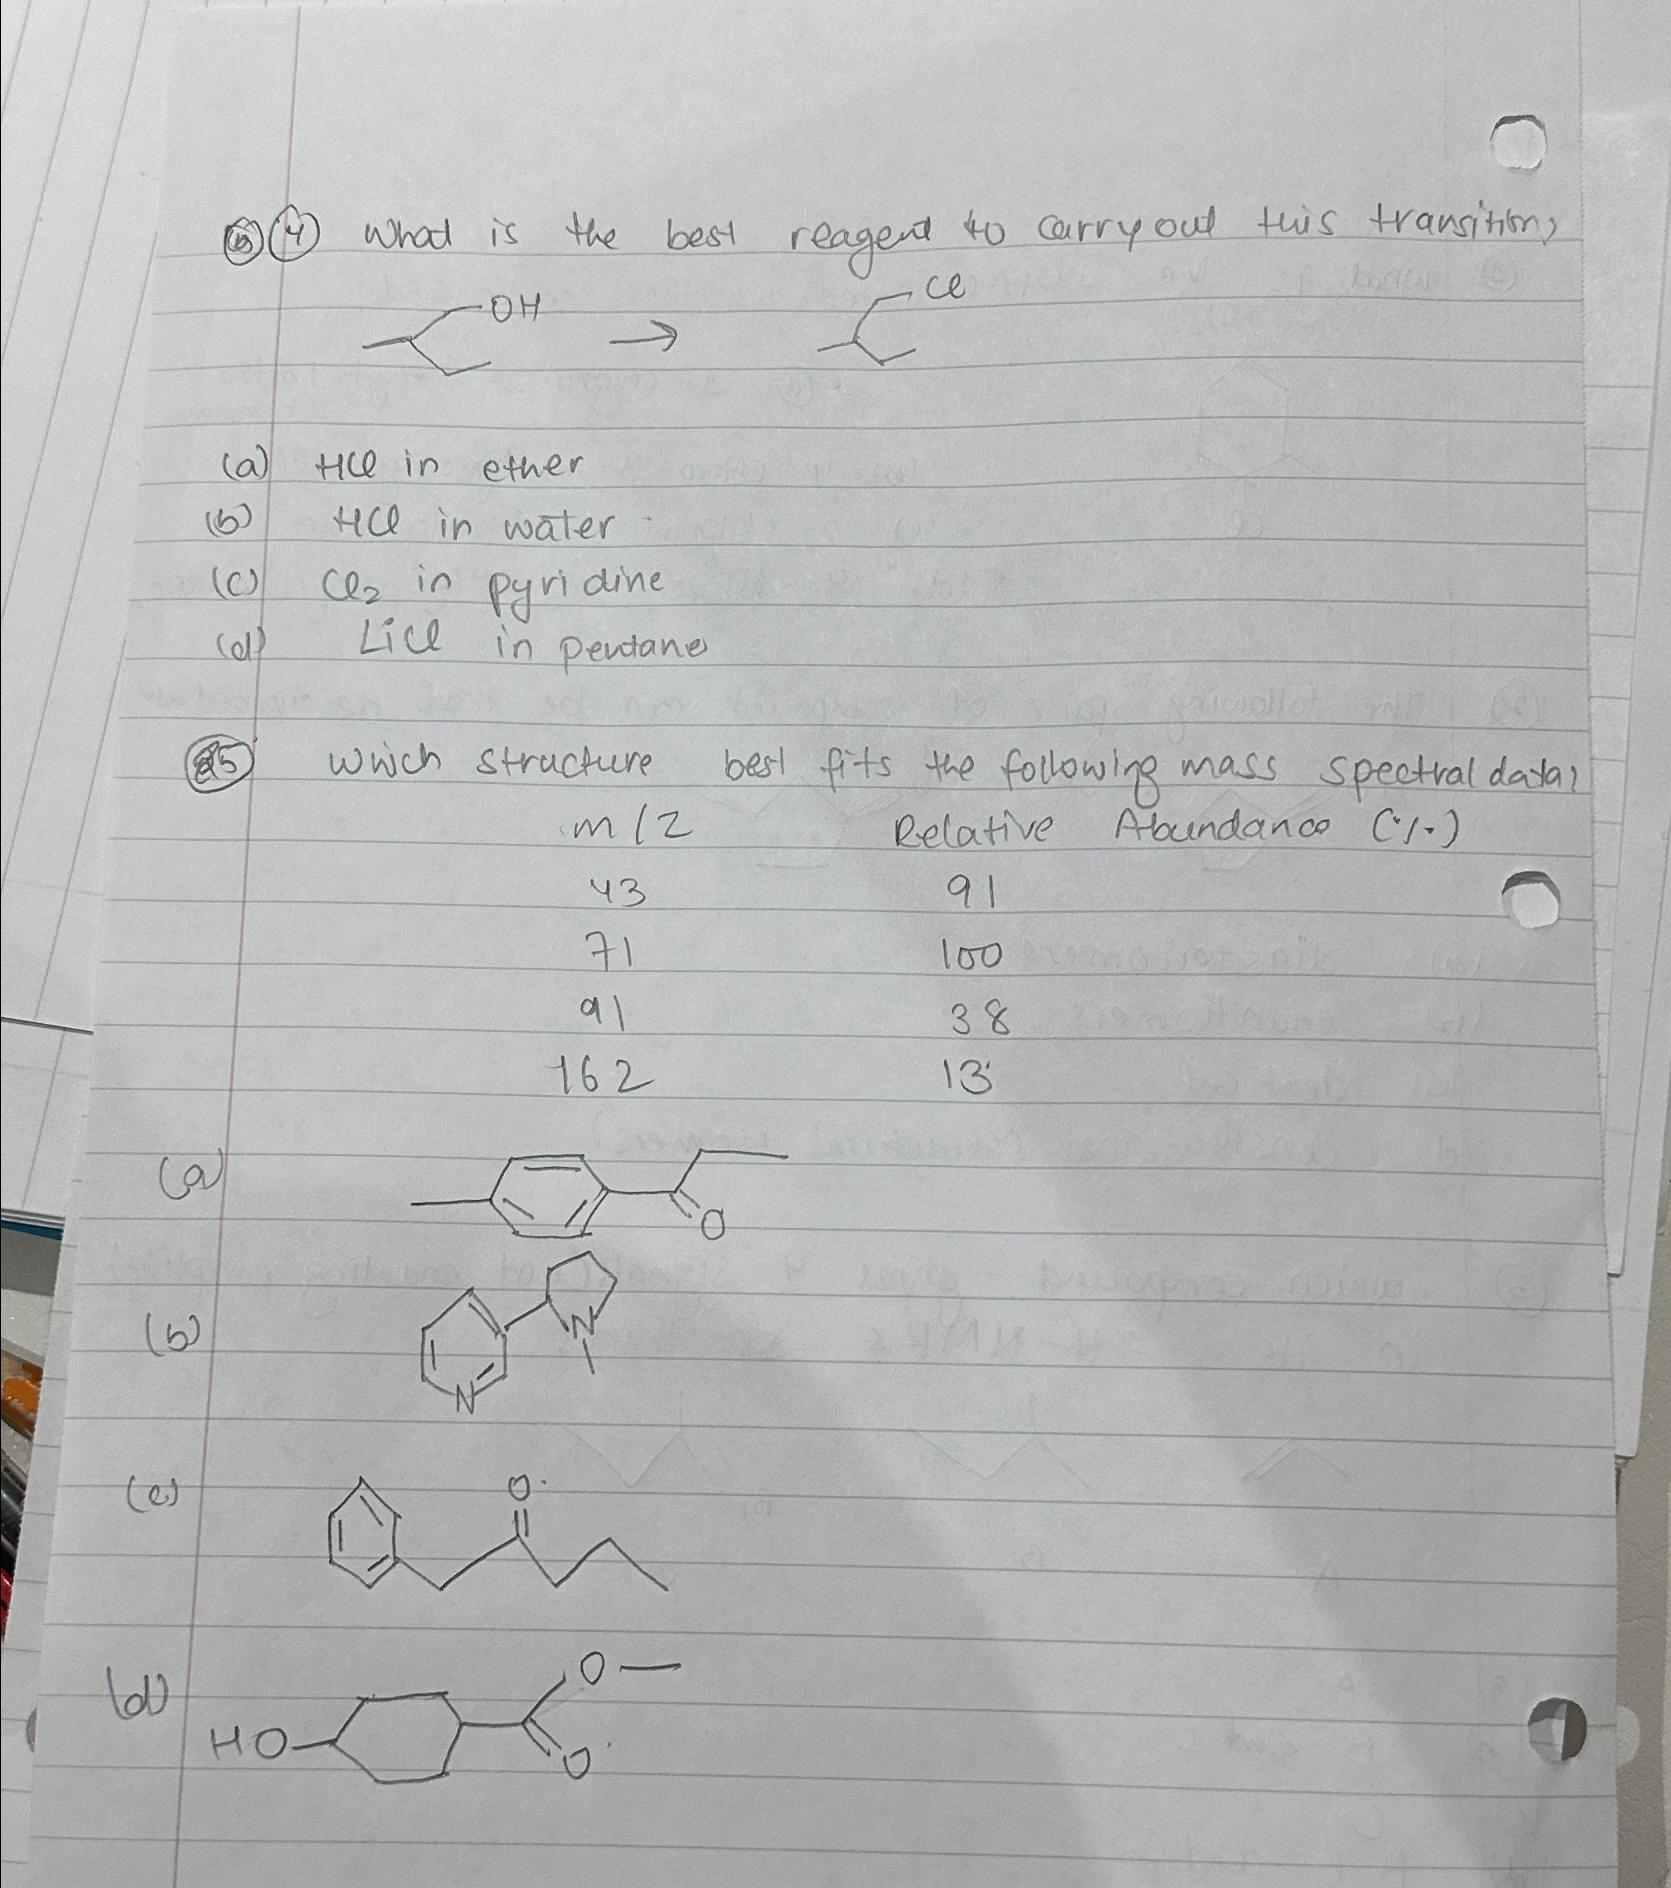 ④ What is the best reagent to carry out this transition?
OH → Cl
(a) HCl in ether
(b) HCl in water
(c) Cl₂ in pyridine
(d) LiCl in pentane
5 Which structure best fits the following mass spectral data?
m/z Relative Abundance (%)
43 91
71 100
91 38
162 13
(a)
O
(b)
N
N
(c)
O
(d)
O
HO
O